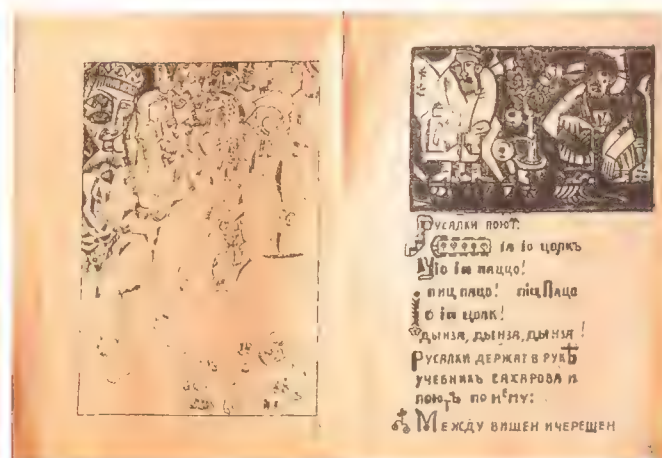 Русалки поют.
іа іо цолкъ
іо іа паццо!
пиц пацо! піц Паца
о іа цолк!
дынза, дынза, дынза!
Русалки держат в рукѣ
учебникъ Сахарова и
поютъ по нему:
Между вишен и черешен